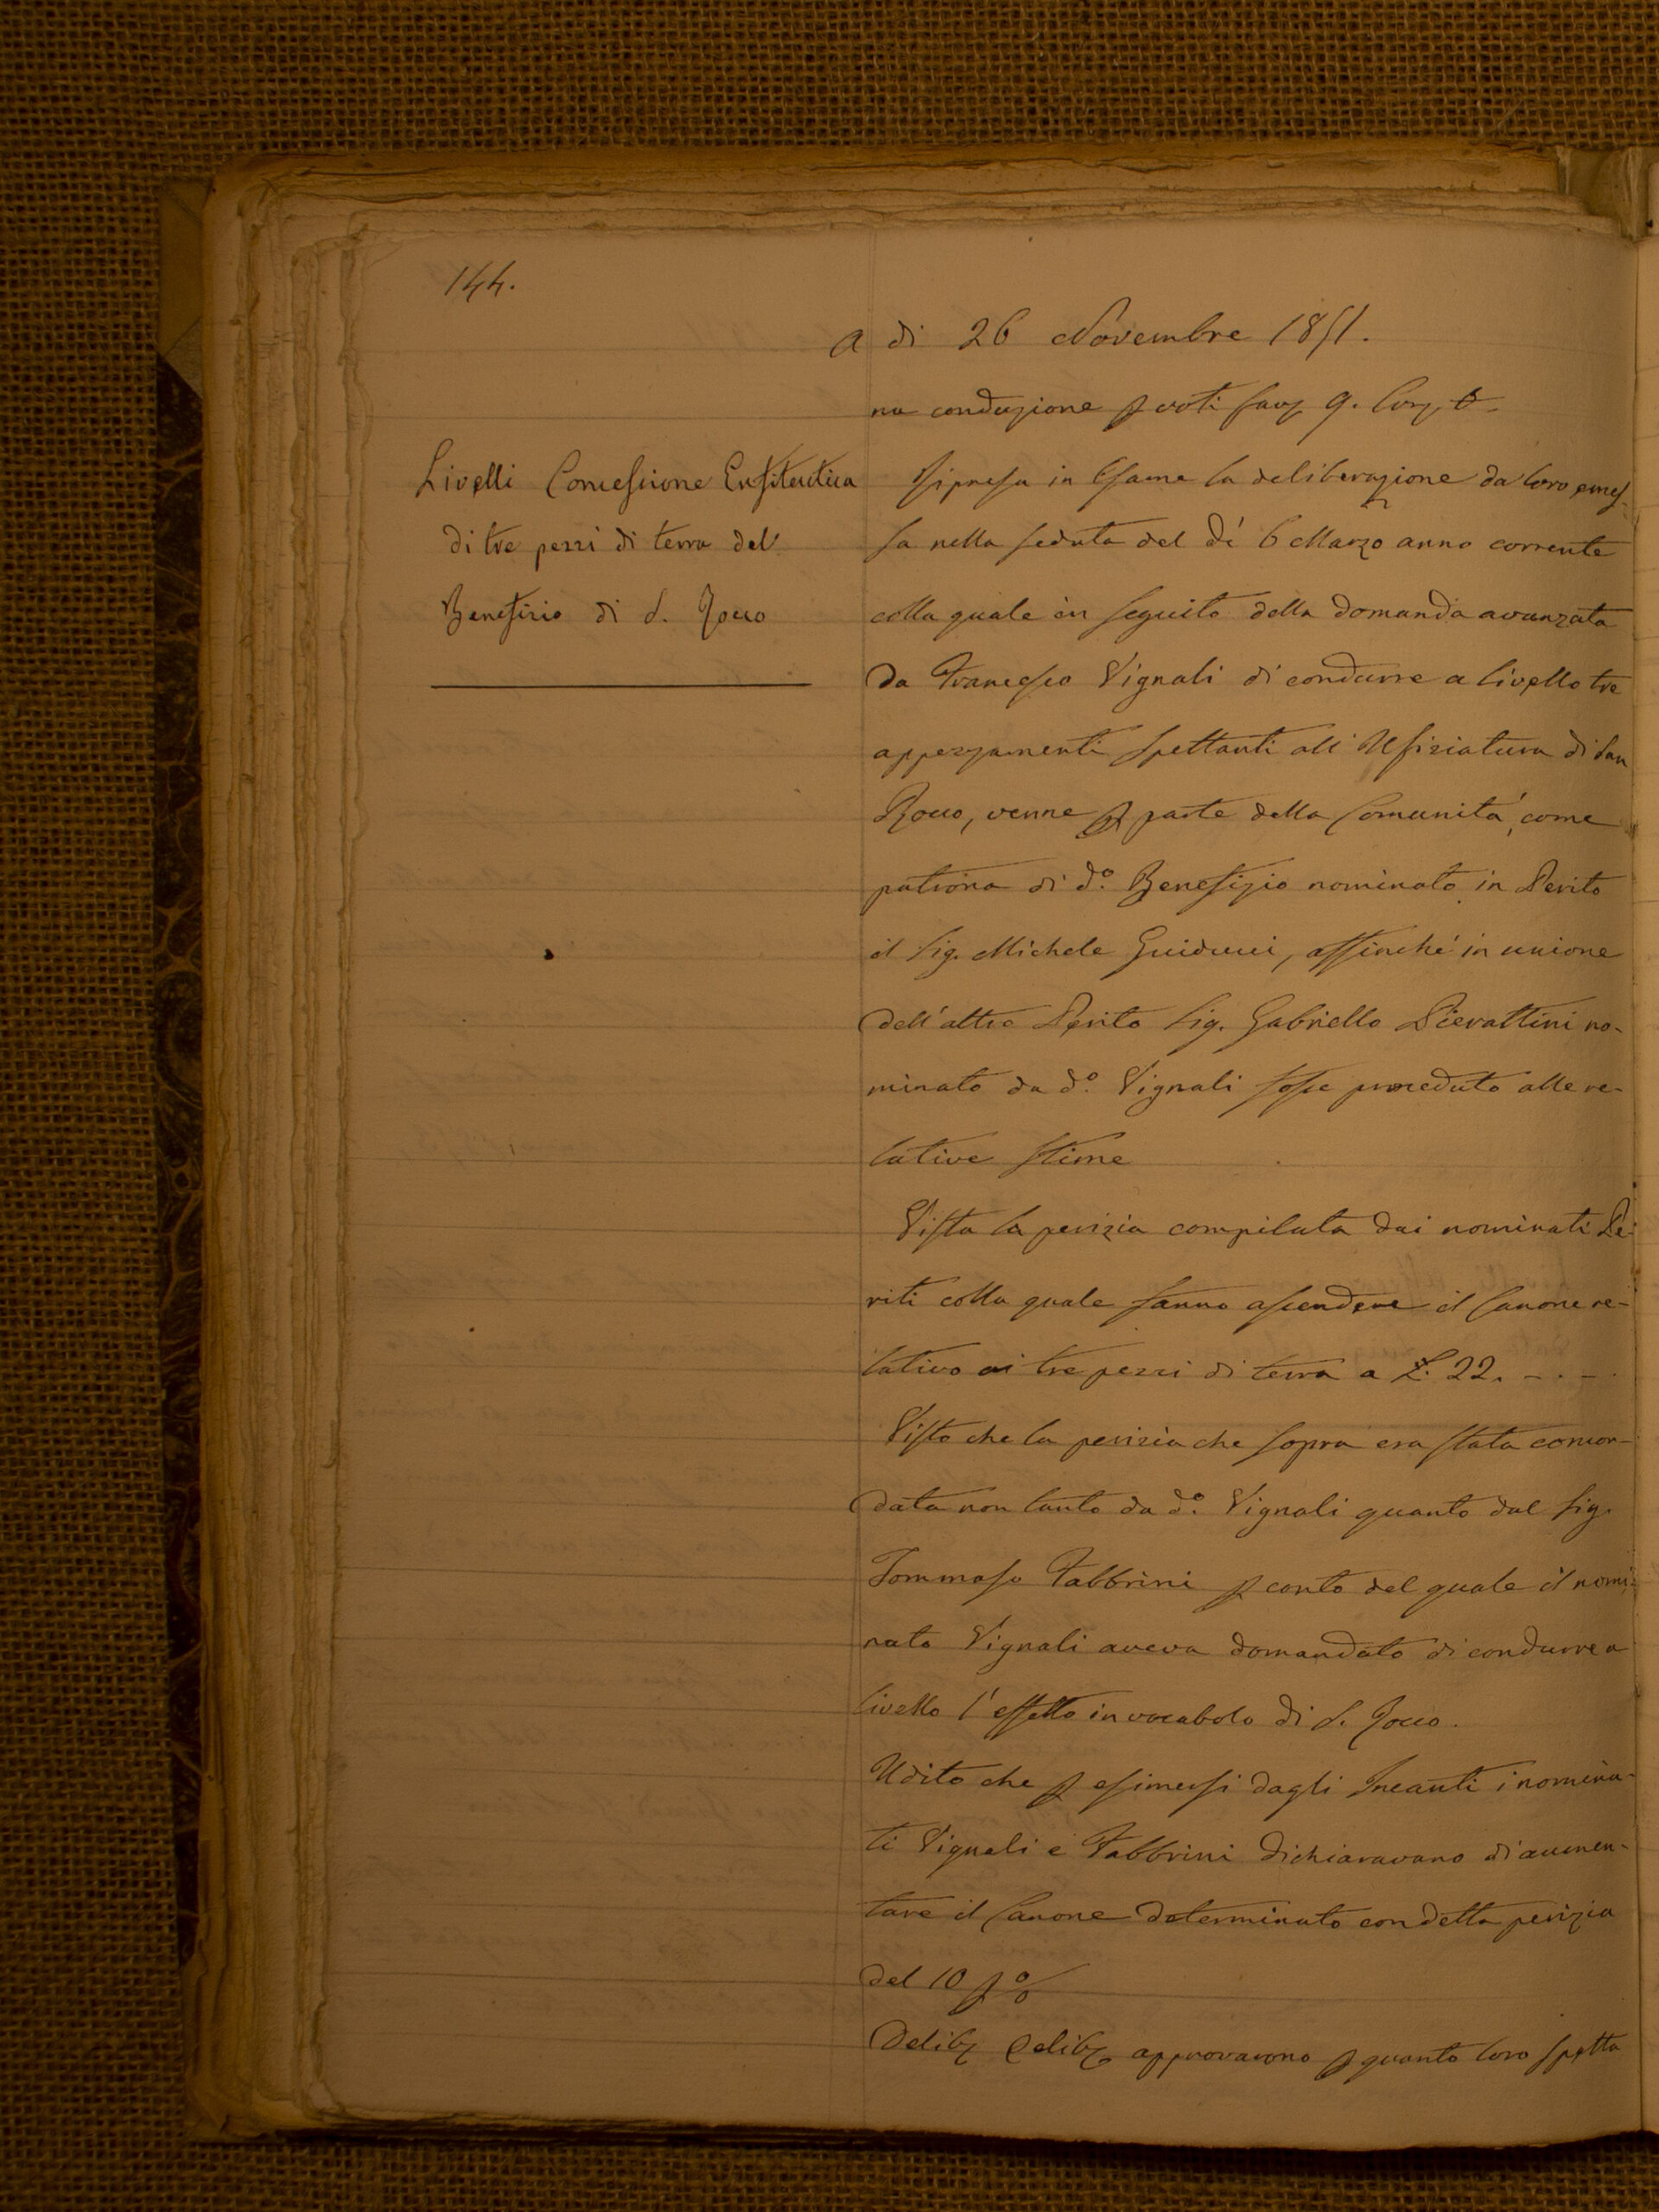 144.
A di 26 Novembre 1851.
na conduzione p voti favz 9. Conz 0.
Livelli Concessione Enfiteutica
di tre pezzi di terra del
Benefizio di S. Rocco
Ripresa in Esame la deliberazione da loro emes-
sa nella seduta del dì 6 Marzo anno corrente
colla quale in seguito della domanda avanzata
da Francesco Vignali di condurre a livello tre
appezzamenti spettanti all'Ufiziatura di San
Rocco, venne p parte della Comunità, come
patrona di do. Benefizio nominato in Perito
il Sig. Michele Guiducci, affinchè in unione
dell'altro Perito Sig. Gabriello Pierattini no-
minato da do. Vignali fosse proceduto alle re-
lative stime
Vista la perizia compilata dai nominati Pe-
riti colla quale fanno ascendere il Canone re-
lativo ai tre pezzi di terra a £. 22. -.-.
Visto che la perizia che sopra era stata concor-
data non tanto da do. Vignali quanto dal Sig.
Tommaso Fabbrini p conto del quale il nomi-
nato Vignali aveva domandato di condurre a
livello l'effetto in vocabolo di S. Rocco.
Udito che p esimersi dagli Incanti i nomina-
ti Vignali e Fabbrini dichiaravano di aumen-
tare il Canone determinato con detta perizia
del 10 p %
Delibz Delibz approvarono p quanto loro spetta